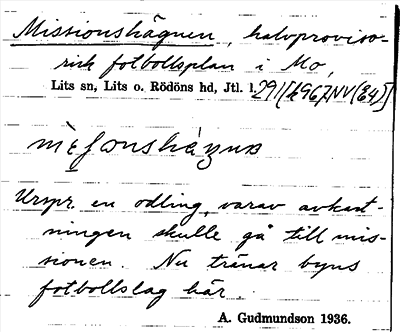 Missionshägnen, halvproviso-
risk fotbollsplan i Mo,
Lits sn, Lits o. Rödöns hd, Jtl. l.
Urspr. en odling, varav avkast-
ningen skulle gå till mis-
sionen. Nu tränar byns
fotbollslag här.
A. Gudmundson 1936.